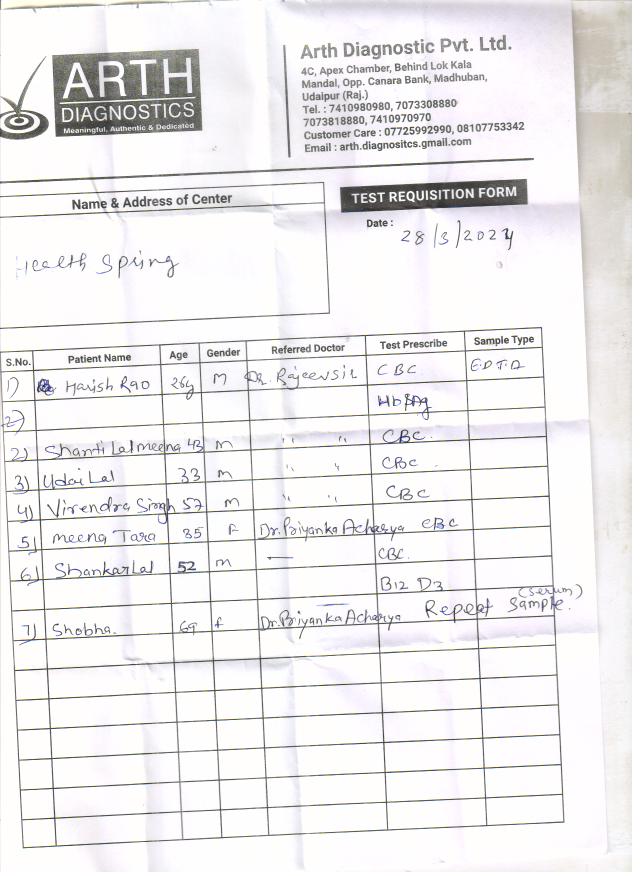 ARTH
DIAGNOSTICS
Meaningful, Authentic & Dedicated
Arth Diagnostic Pvt. Ltd.
4C, Apex Chamber, Behind Lok Kala
Mandal, Opp. Canara Bank, Madhuban,
Udaipur (Raj.)
Tel. : 7410980980, 7073308880
7073818880, 7410970970
Customer Care : 07725992990, 08107753342
Email : arth.diagnositcs.gmail.com
Name & Address of Center
TEST REQUISITION FORM
Date : 28/3/2024
Health Spring
S.No. Patient Name Age Gender Referred Doctor Test Prescribe Sample Type
1) Harish Rao 26y M Dr. Rajeevsir CBC E.D.T.A
2) HbsAg
2) Shanti Lal meena 43 m " " CBC.
3) Udai Lal 33 m " " CBC.
4) Virendra Singh 57 m " " CBC
5) meena Tara 35 F Dr. Priyanka Acharya CBC
6) Shankar Lal 52 m — CBC.
B12 D3
7) Shobha. 69 f Dr. Priyanka Acharya Repeat Sample. (Serum)